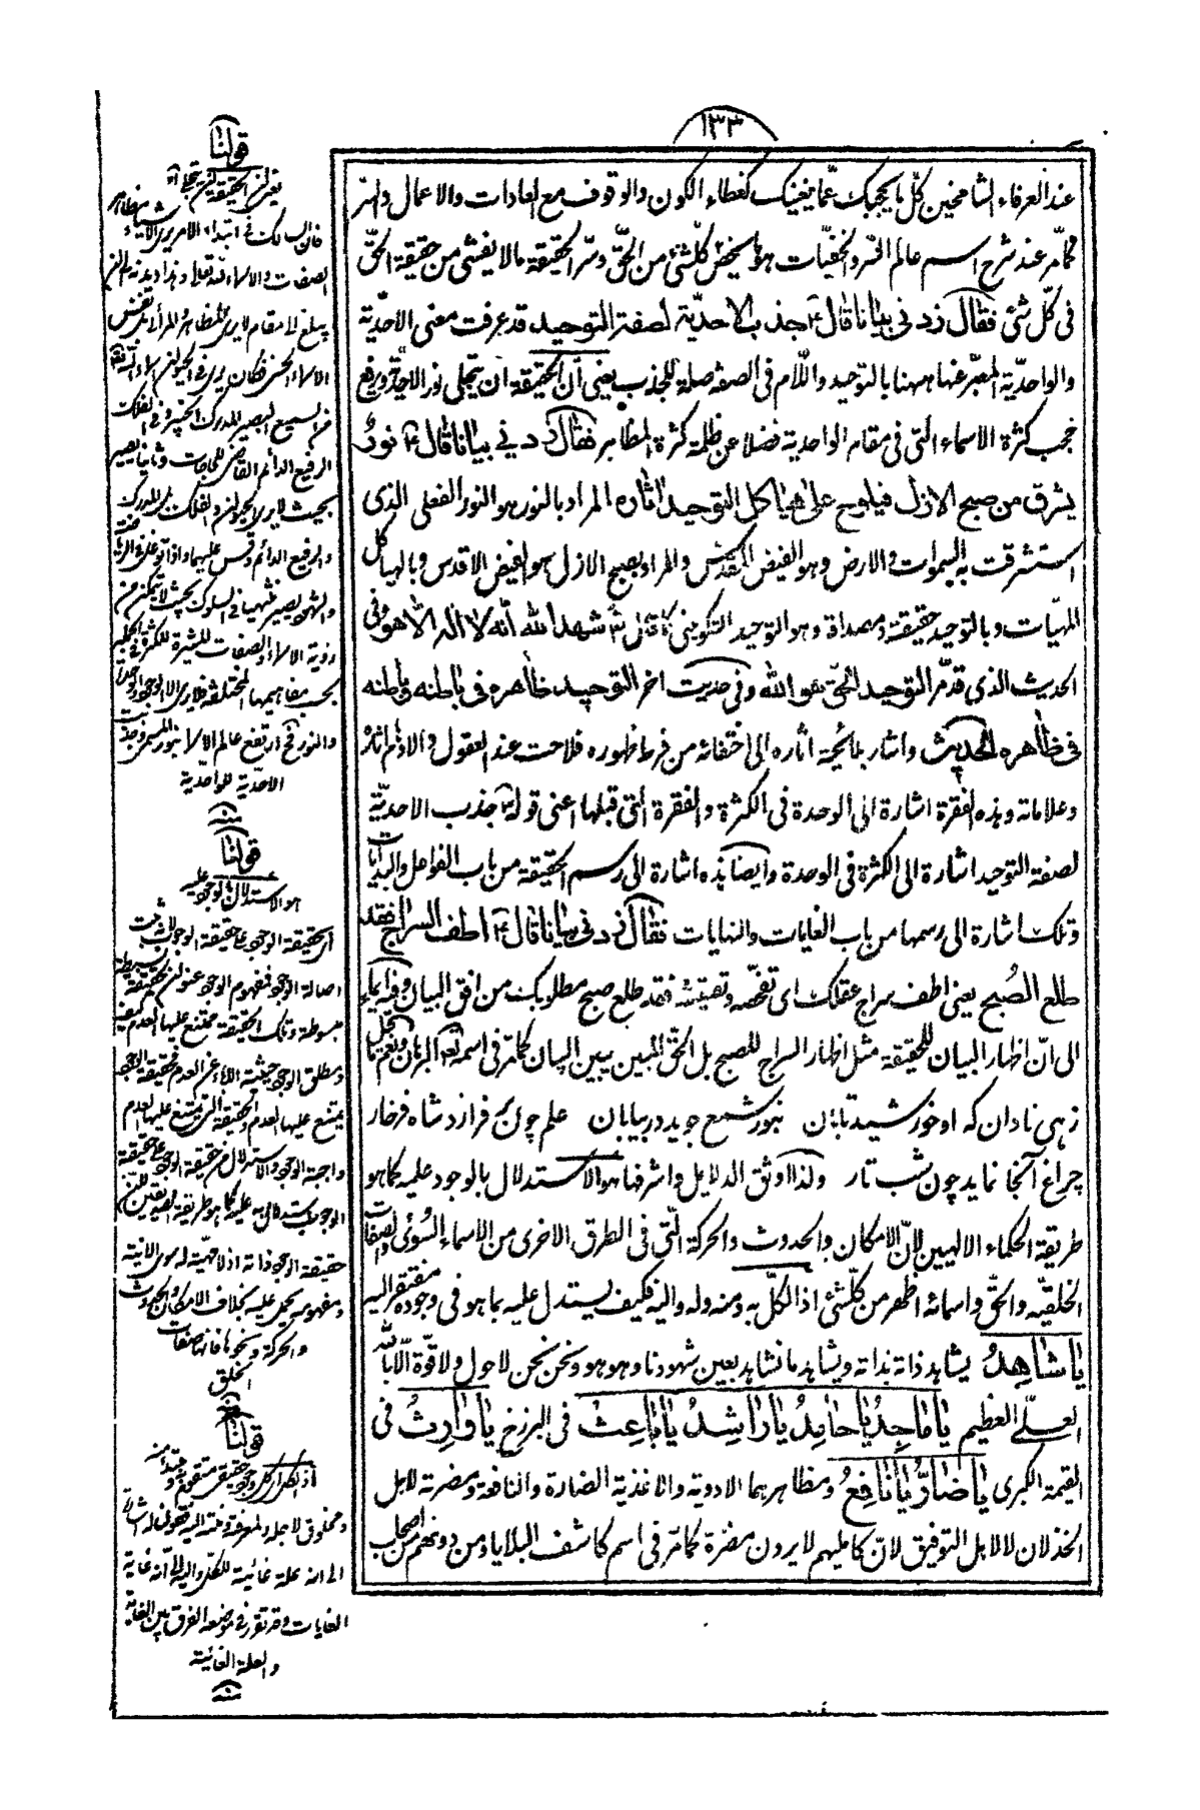 ١٣٣
عند العرفاء الشامخين كل ما يحجبك عما يعنيك كغطاء الكون والوقوف مع العادات والاعمال والسر
كما مر عند شرح اسم عالم السر والخفيات هو ما يخص كل شئ من الحق وسر الحقيقة ما لا يفشى من حقيقة الحق
فى كل شئ فقال زدنى بيانا قال ع جذب الاحدية لصفة التوحيد قد عرفت معنى الاحدية
والواحدية المعبر عنها ههنا بالتوحيد واللام فى الصفة صلة للجذب يعنى أن الحقيقة ان يتجلى نور الاحدية ويرفع
حجب كثرة الاسماء التى فى مقام الواحدية فضلا عن ظلمة كثرة المظاهر فقال زدنى بيانا قال ع نور
يشرق من صبح الازل فيلوح على هياكل التوحيد اثاره المراد بالنور هو النور الفعلى الذى
استشرقت به السموات والارض وهو الفيض المقدس والمراد بصبح الازل هو الفيض الاقدس وبالهياكل
المهيات وبالتوحيد حقيقته ومصداقه وهو التوحيد التكوينى كما قال تع شهد الله أنه لا اله الا هو وفى
الحديث الذى قد مر التوحيد الحق هو الله وفى حديث اخر التوحيد ظاهره فى باطنه وباطنه
فى ظاهره الحديث واشار بمائحية اثاره الى اختفائه من فرط ظهوره فلاحت عند العقول والاوهام اثاره
وعلاماته وهذه الفقرة اشارة الى الوحدة فى الكثرة والفقرة التى قبلها اعنى قوله ع جذب الاحدية
لصفة التوحيد اشارة الى الكثرة فى الوحدة وايضا هذه اشارة الى رسم الحقيقة من باب الفواعل والبدايات
وتلك اشارة الى رسمها من باب الغايات والنهايات فقال زدنى بيانا قال ع اطف السراج فقد
طلع الصبح يعنى اطف سراج عقلك اى تفحصه وتفتيشه فقد طلع صبح مطلوبك من افق البيان وفيه ايماء
الى ان اظهار البيان للحقيقة مثل اظهار السراج للصبح بل الحق المبين يبين البيان كما مر فى اسمه تع البرهان ونعم ما قيل
زهى نادان كه او خورشيد تابان بنور شمع جويد در بيابان علم چون بر فرازد شاه فرخار
چراغ آنجا نمايد چون شب تار ولذا اوثق الدلايل واشرفها هو الاستدلال بالوجود عليه كما هو
طريقة الحكماء الالهيين لان الامكان والحدوث والحركة التى فى الطرق الاخرى من الاسماء السوئى والصفات
الخلقيه والحق واسمائه اظهر من كل شئ اذ الكل به ومنه وله واليه فكيف يستدل عليه بما هو فى وجوده مفتقر اليه
يا شاهد يشاهد ذاته بذاته ويشاهد ما نشاهد بعين شهودنا وهو هو ونحن نحن لا حول ولا قوة الا بالله
العلى العظيم يا ماجد يا حامد يا راشد يا باعث فى البرزخ يا وارث فى
القيمة الكبرى يا ضار يا نافع ومظاهرهما الادوية والاغذية الضارة والنافعة ومضرته لاهل
الخذلان لا لاهل التوفيق لان كامليهم لا يرون مضرة كما مر فى اسم كاشف البلايا ومن دونهم من اصحاب
قولنا
يعنى ان الحقيقة ان يتجلى آه
فان السالك فى ابتداء الامر يرى الاشياء مظاهر
الصفات والاسماء لله تعالى وهذا ديدنه الى ان
يبلغ الى مقام لا يرى المظاهر والمرائى بل نفس
الاسماء الحسنى فكان يرى فى الحيوان اسماء الله
من السميع البصير المدرك الخبير وفى الفلك
الرفيع الدائم القاضى للحاجات وثانيا يصير
بحيث لا يرى الحيوان والفلك بل المدرك
والرفيع الدائم وقس عليهما واذا توغل فى الرياضة
والشهود يصير منتهيا فى السلوك بحيث لا يتمكن من
رؤية الاسماء والصفات المشيرة للكثرة فى الجملة
بحسب مفاهيمها المختلفة فلا يرى الا الوجود والوحدة
والنور فح ارتفع عالم الاسماء بنور المسمى وجذبت
الاحدية للواحدية
منه
قولنا
هو الاستدلال بالوجود عليه
اى بحقيقة الوجود على حقيقة الوجوب اذ ثبت
اصالة الوجود فمفهوم الوجود عنوان لحقيقة بسيطة
مبسوطة وتلك الحقيقة ممتنع عليها العدم كيف
ومطلق الوجود حيثية الاباء عن العدم فحقيقة الوجود
يمتنع عليها العدم والحقيقة التى يمتنع عليها العدم
واجبة الوجود والاستدلال من حقيقة الوجود على حقيقة
الوجوب استدلال به عليه كما هو طريقة الصديقين لان
حقيقة الوجود ذاته اذ لا مهية له سوى الانية
ومفهومه يحمل عليه بخلاف الامكان والحدوث
والحركة ونحوها فانها صفات
الخلق
منه
قولنا
اذ الضرار
ومخلوق لاجله والمعرفة وختمه اليه فقولنا له اشارة
الى انه علة غائية للكل واليه الى انه غاية
الغايات وقد تقرر فى موضعه الفرق بين الغاية
والعلة الغائية
منه